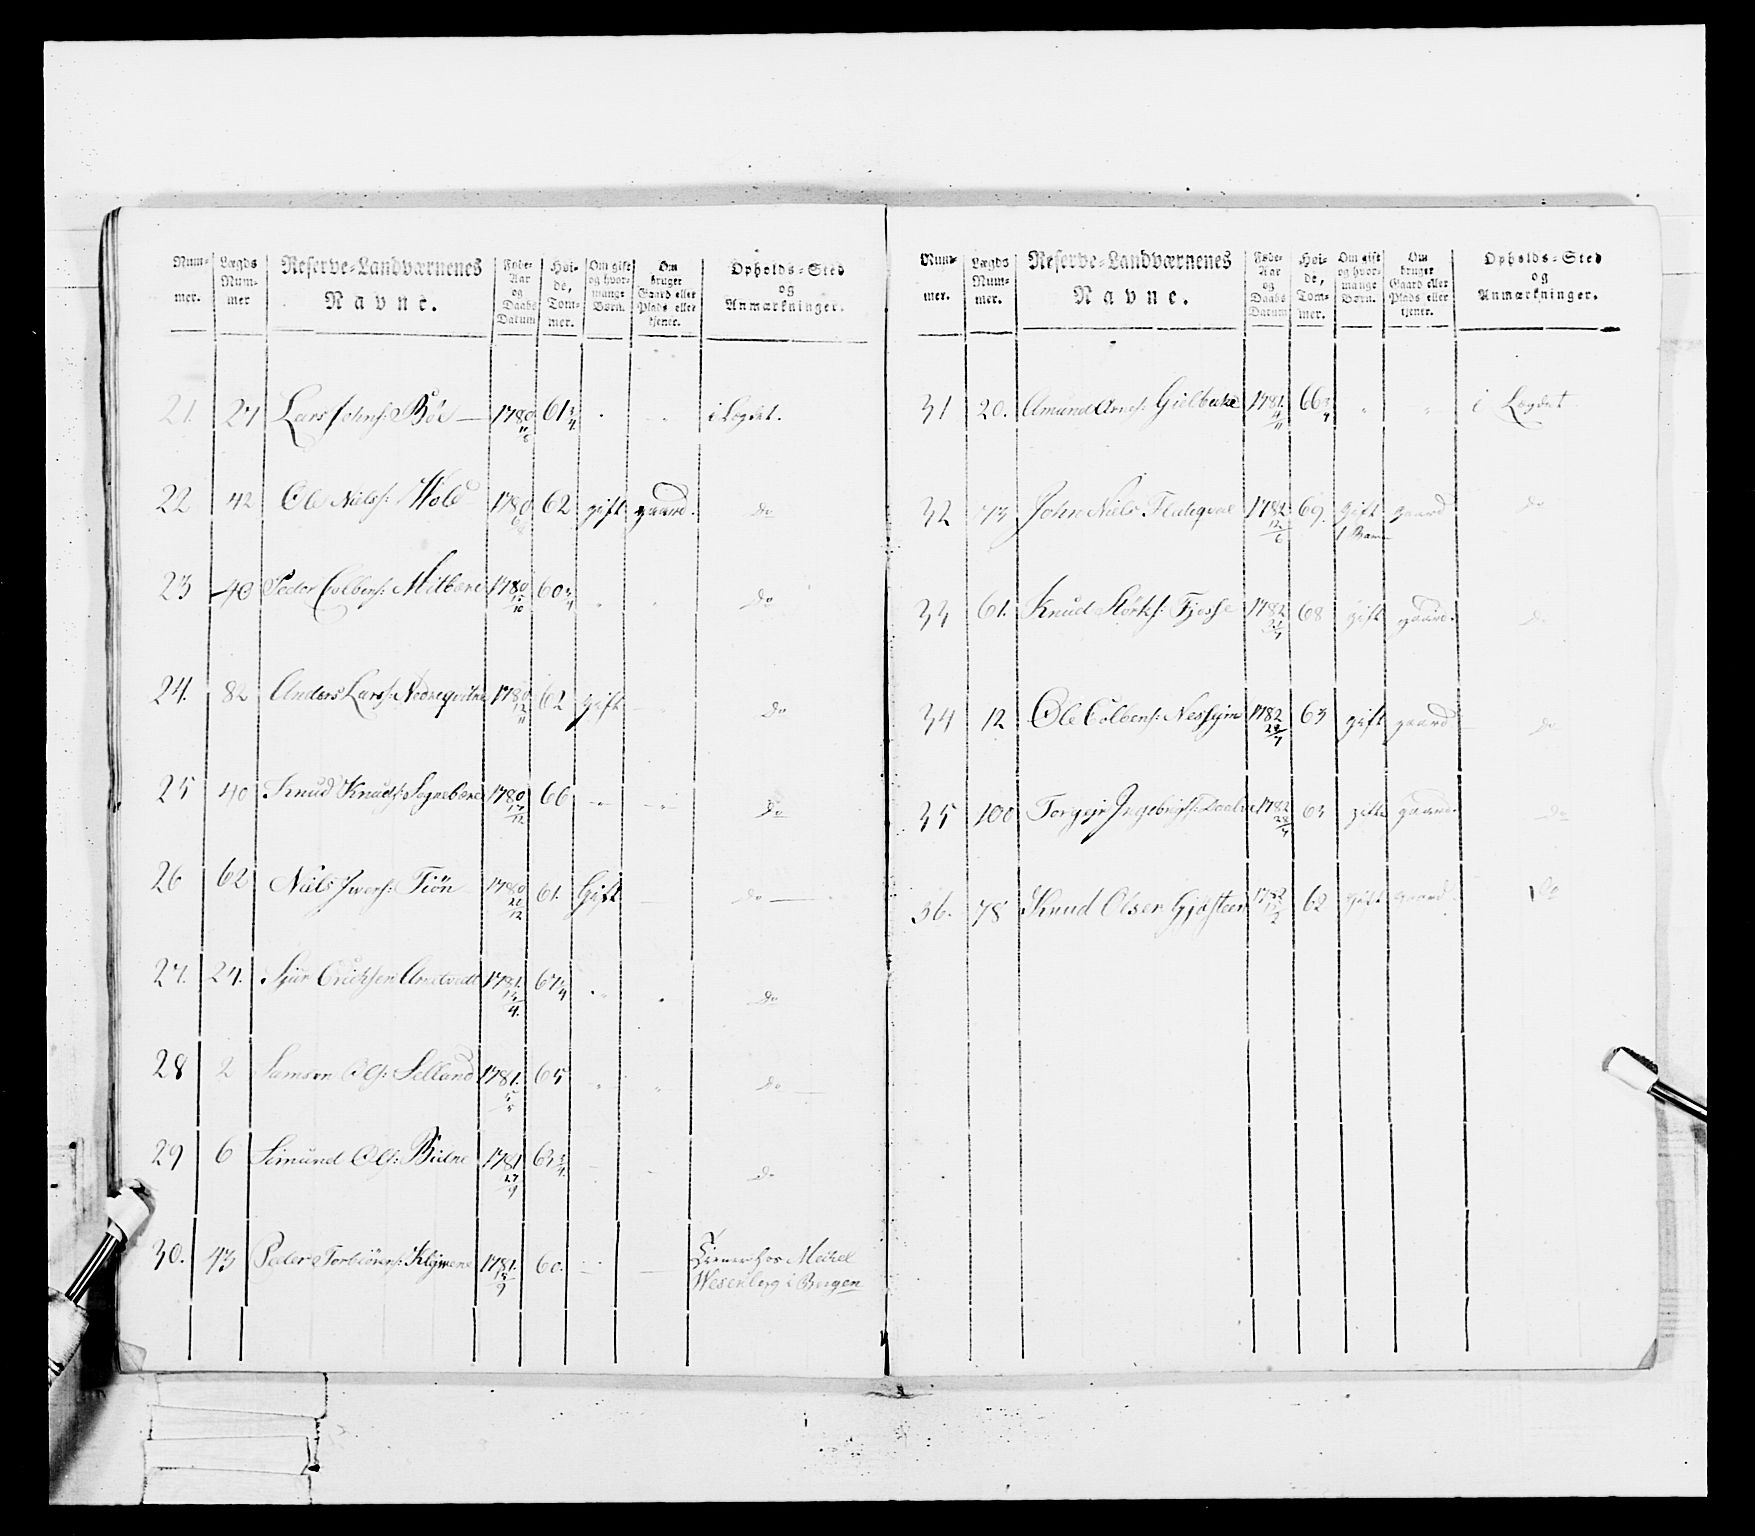 Num-mer. Lægds Num-mer Reserve-Landværnenes Navne. Føde-Aar og Daabs Datum Høi-de, Tom-mer. Om gift og hvor-mange Børn. Om bruger Gaard eller Plads eller tjener. Opholds-Sted og Anmærkninger.
21. 27 Lars Johns: Bøe 1780 61 3/4 i Legdet.
22 42 Ole Niels: Wold 1780 62 gift gaard. do
23 40 Peder Colbens: 1780 60 3/4 do
24. 82 Anders Lars: 1780 12/11 62 gift do
25 40 Knud Knuds: 1780 17/12 66 do
26 62 Niels Iwers: Tiön 1780 21/12 61. Gift do
27. 24. Sjur Ericksen 1781. 67 3/4 do
28 2 Samson Ols: Selland 1781. 5/5 65 do
29 6 Simund Ols: 1781 27/9 63 3/4 do
30. 43 Peder Torbiörns: 1781. 18/9 60. Tiener hos Michel
Wesenberg i Bergen
Num-mer. Lægds Num-mer. Reserve-Landværnenes Navne. Føde-Aar og Daabs Datum Høi-de, Tom-mer. Om gift og hvor-mange Børn. Om bruger Gaard eller Plads eller tjener. Opholds-Sted og Anmærkninger.
31 20. Amund Arnes: 1781. 4/11 66 3/4 i Legdet
32 73 John Niels 1782 12/6 69. gift gaard do
1 Barn
33 61. Knud Störks: Fjosse 1782 68 gift gaard. do
34 12 Ole Colbens: 1782 63 gift gaard do
35 100 Torgejr Ingebrigts: 1782 63 gift gaard. do
36. 78 Knud Olsen 1782 62 gift gaard do